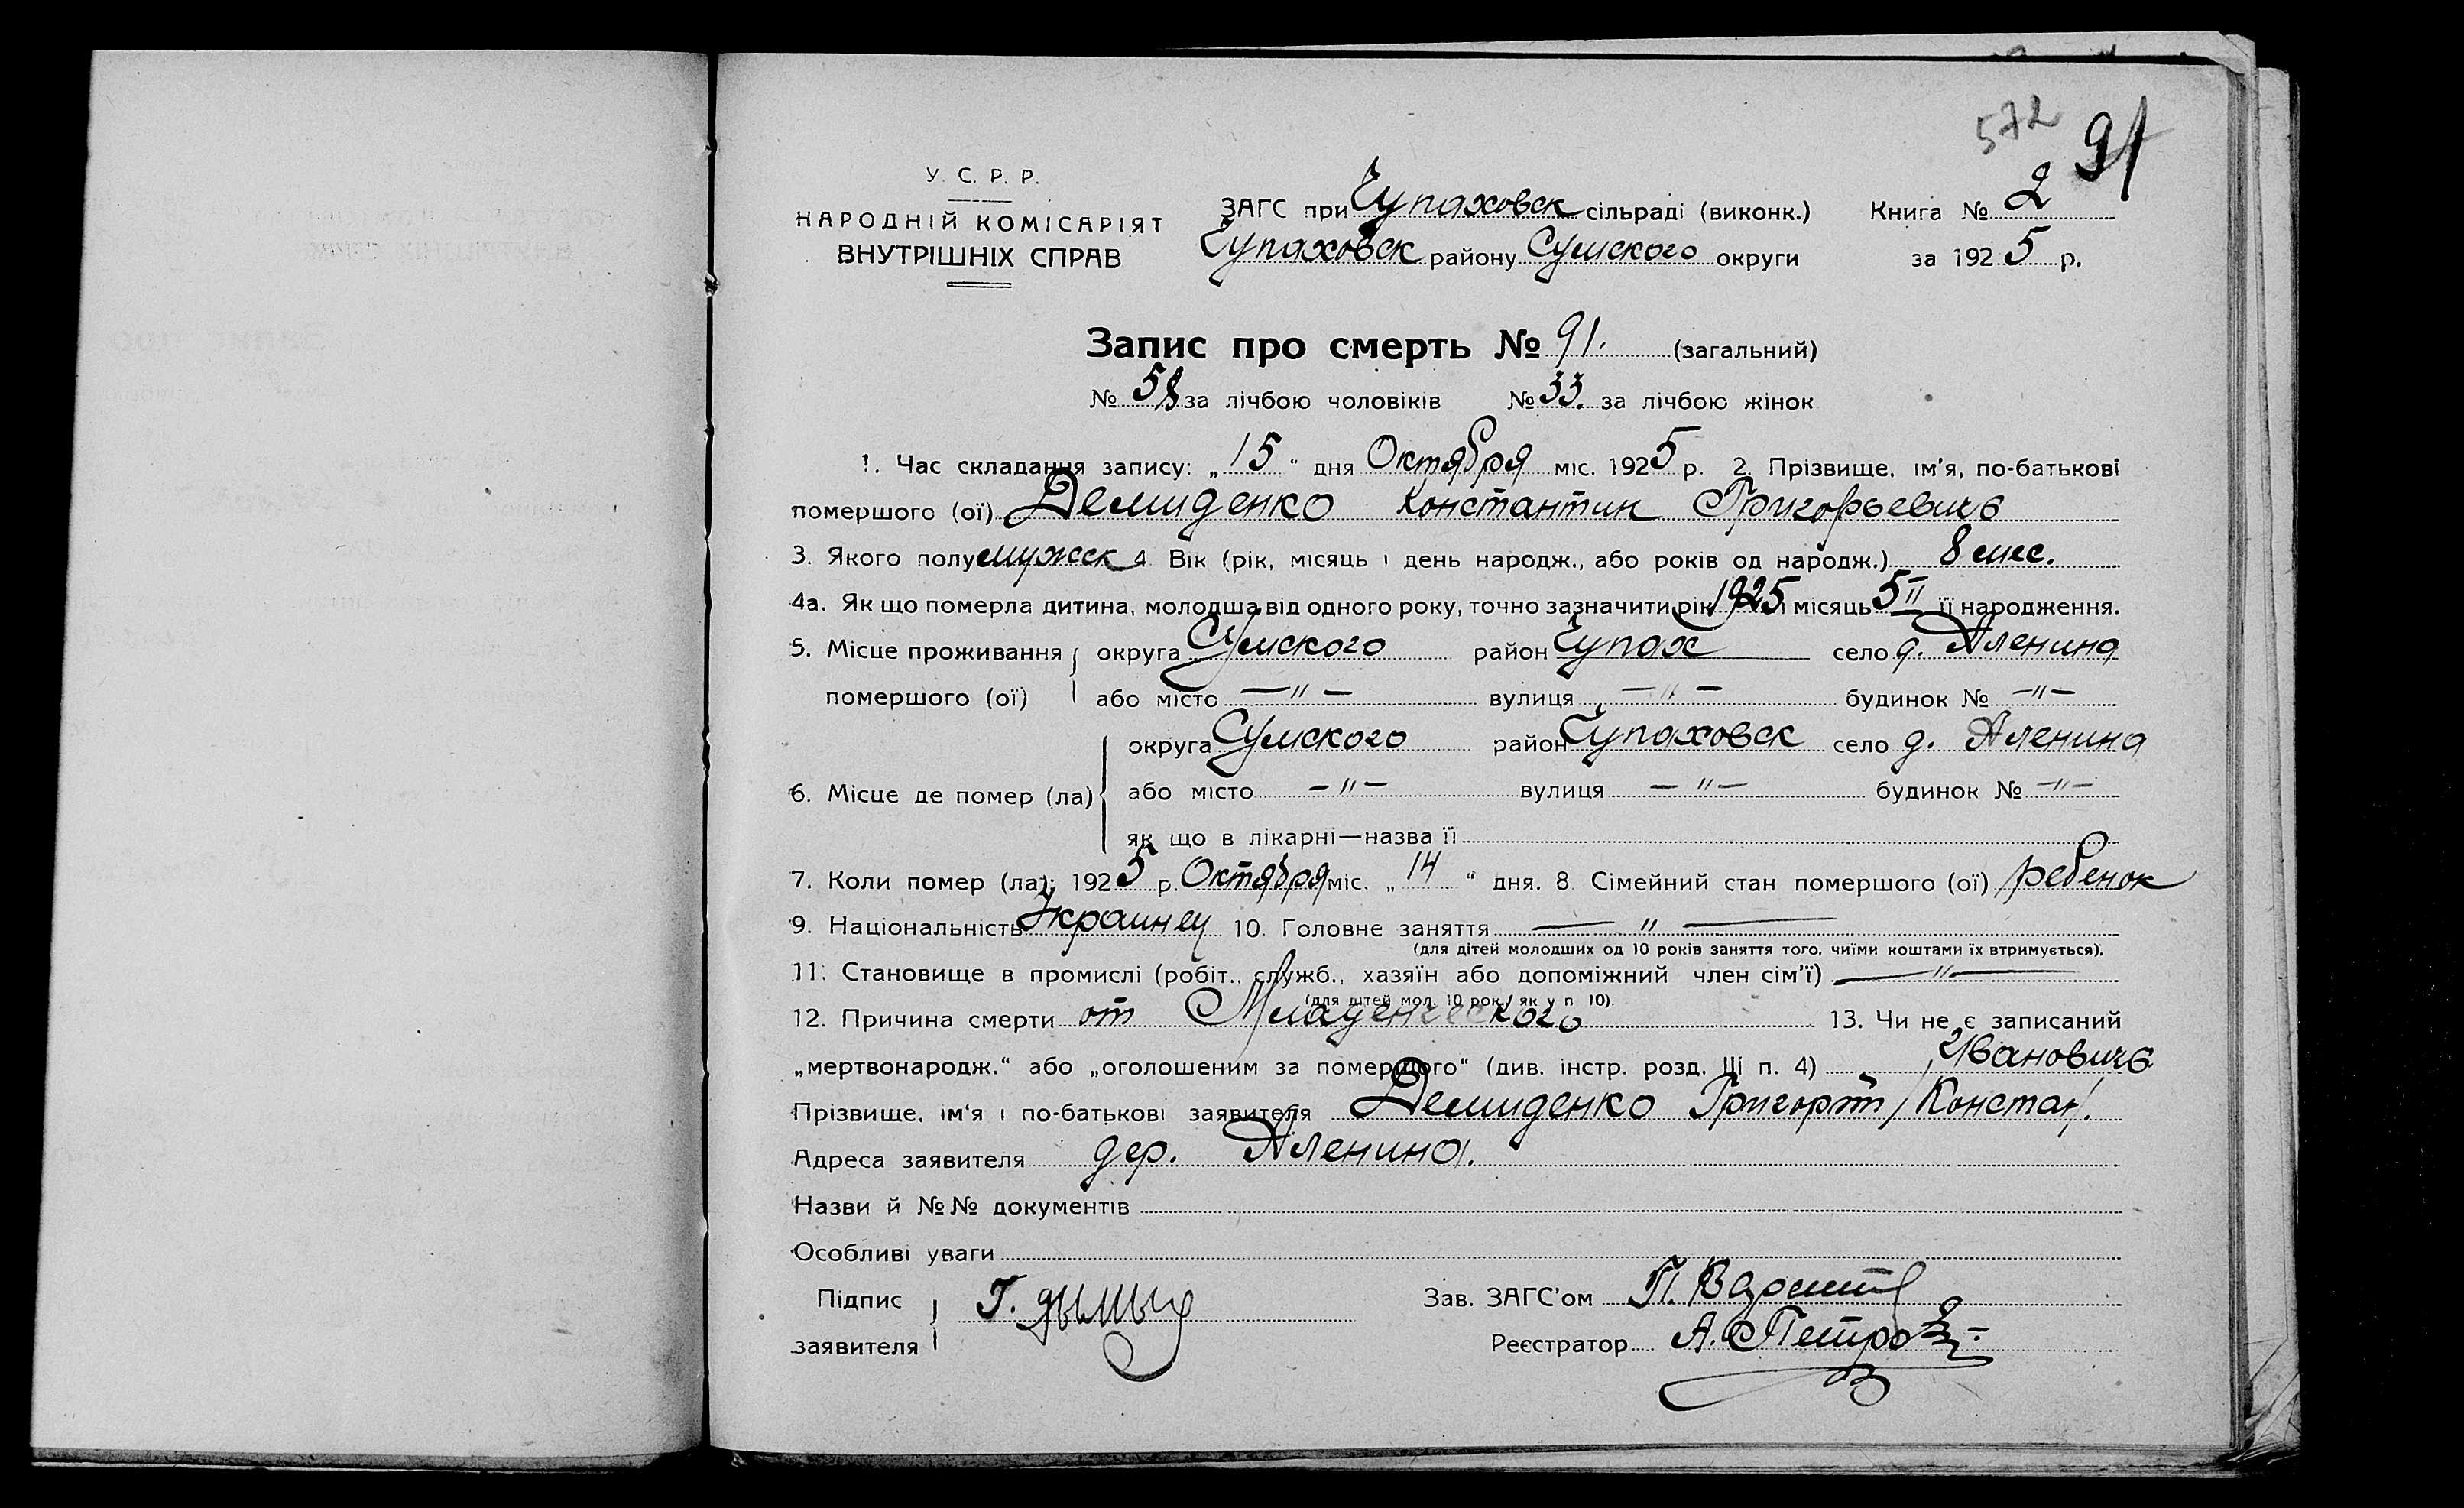 572 91
У. С. Р. Р.
НАРОДНІЙ КОМІСАРІЯТ
ВНУТРІШНІХ СПРАВ
ЗАГС при Чупаховск сільраді (виконк.) Книга № 2
Чупаховск району Сумского округи за 1925 р.
Запис про смерть № 91. (загальний)
№ 58 за лічбою чоловіків № 33. за лічбою жінок
1. Час складання запису: „15“ дня Октября міс. 1925 р. 2. Прізвище, ім'я, по-батькові
помершого (ої) Демиденко Константин Григорьевичь
3. Якого полу мужск 4. Вік (рік, місяць і день народж., або років од народж.) 8 мес.
4а. Як що померла дитина, молодша від одного року, точно зазначити рік 1925 і місяць 5 II її народження.
5. Місце проживання округа Сумского район Чупах село д. Аленина
помершого (ої) або місто —"— вулиця —"— будинок № —"—
округа Сумского район Чупаховск село д. Аленина
6. Місце де помер (ла) або місто —"— вулиця —"— будинок № —"—
як що в лікарні—назва її
7. Коли помер (ла): 1925 р. Октября міс. „14“ дня. 8. Сімейний стан помершого (ої) ребенок
9. Національність Украинец 10. Головне заняття —"—
(для дітей молодших од 10 років заняття того, чиїми коштами їх втримується).
11. Становище в промислі (робіт., служб., хазяїн або допоміжний член сім'ї) —"—
(для дітей мол. 10 рок. як у п 10).
12. Причина смерти от Младенческого 13. Чи не є записаний
„мертвонародж.“ або „оголошеним за помершого“ (див. інстр. розд. III п. 4) Ивановичь
Прізвище, ім'я і по-батькові заявителя Демиденко Григорій / Констан/.
Адреса заявителя дер. Аленина.
Назви й №№ документів
Особливі уваги
Підпис Г. Зав. ЗАГС'ом П.
заявителя Реєстратор А. Петро